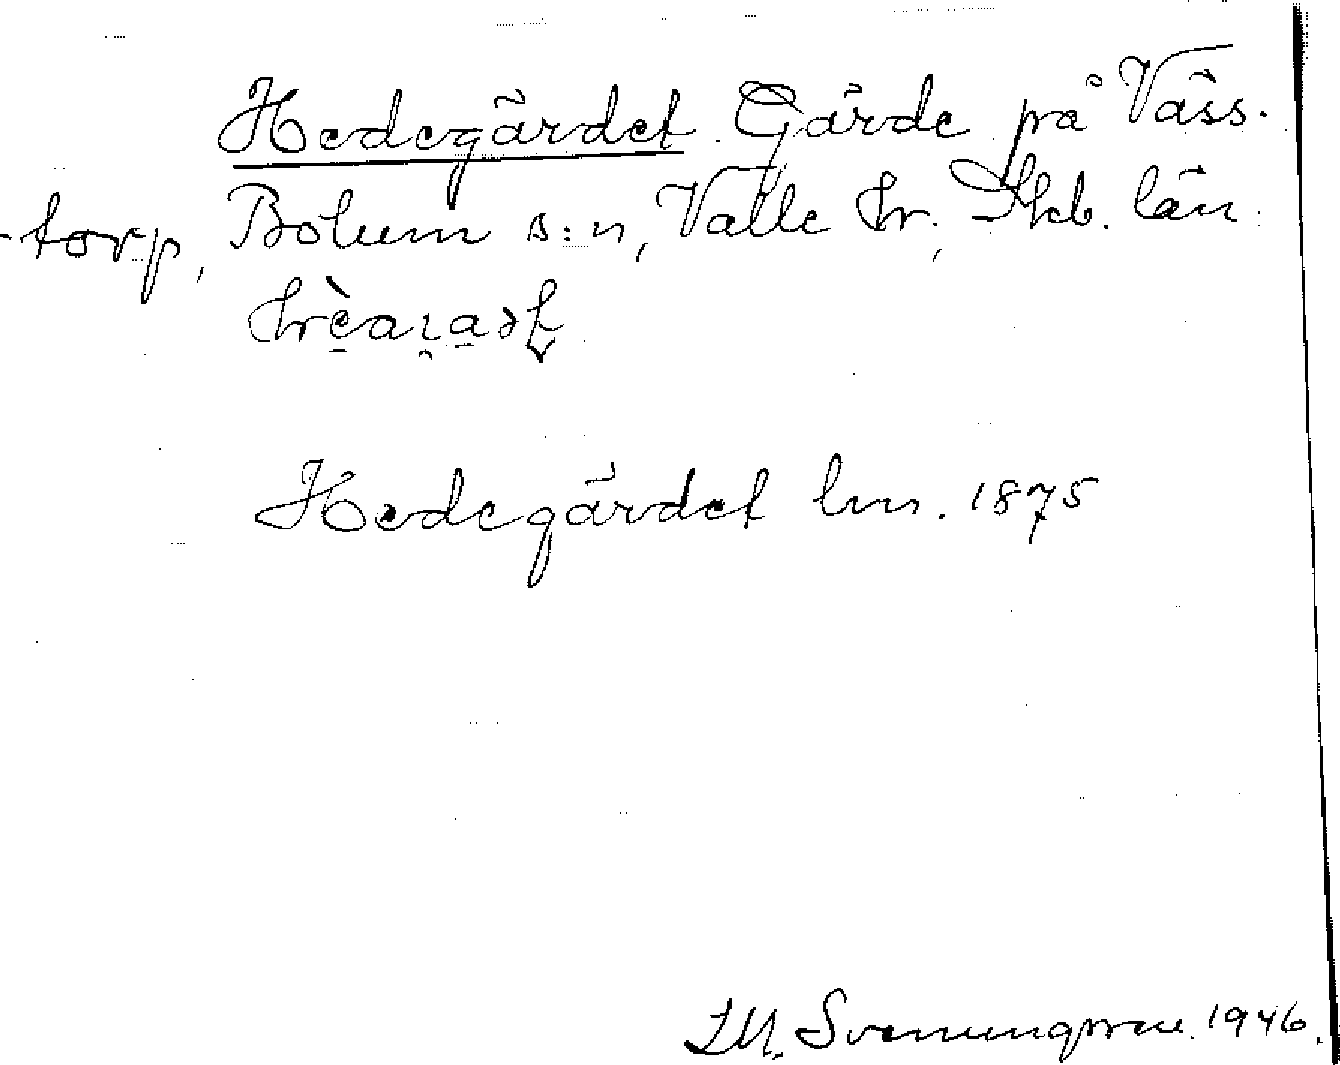 Hedegärdet Gärde på Väss-
-torp, Bolum s:n, Valle hr., Skb. län.
Hedegärdet lm. 1875
I.M. Svenungsson 1946.